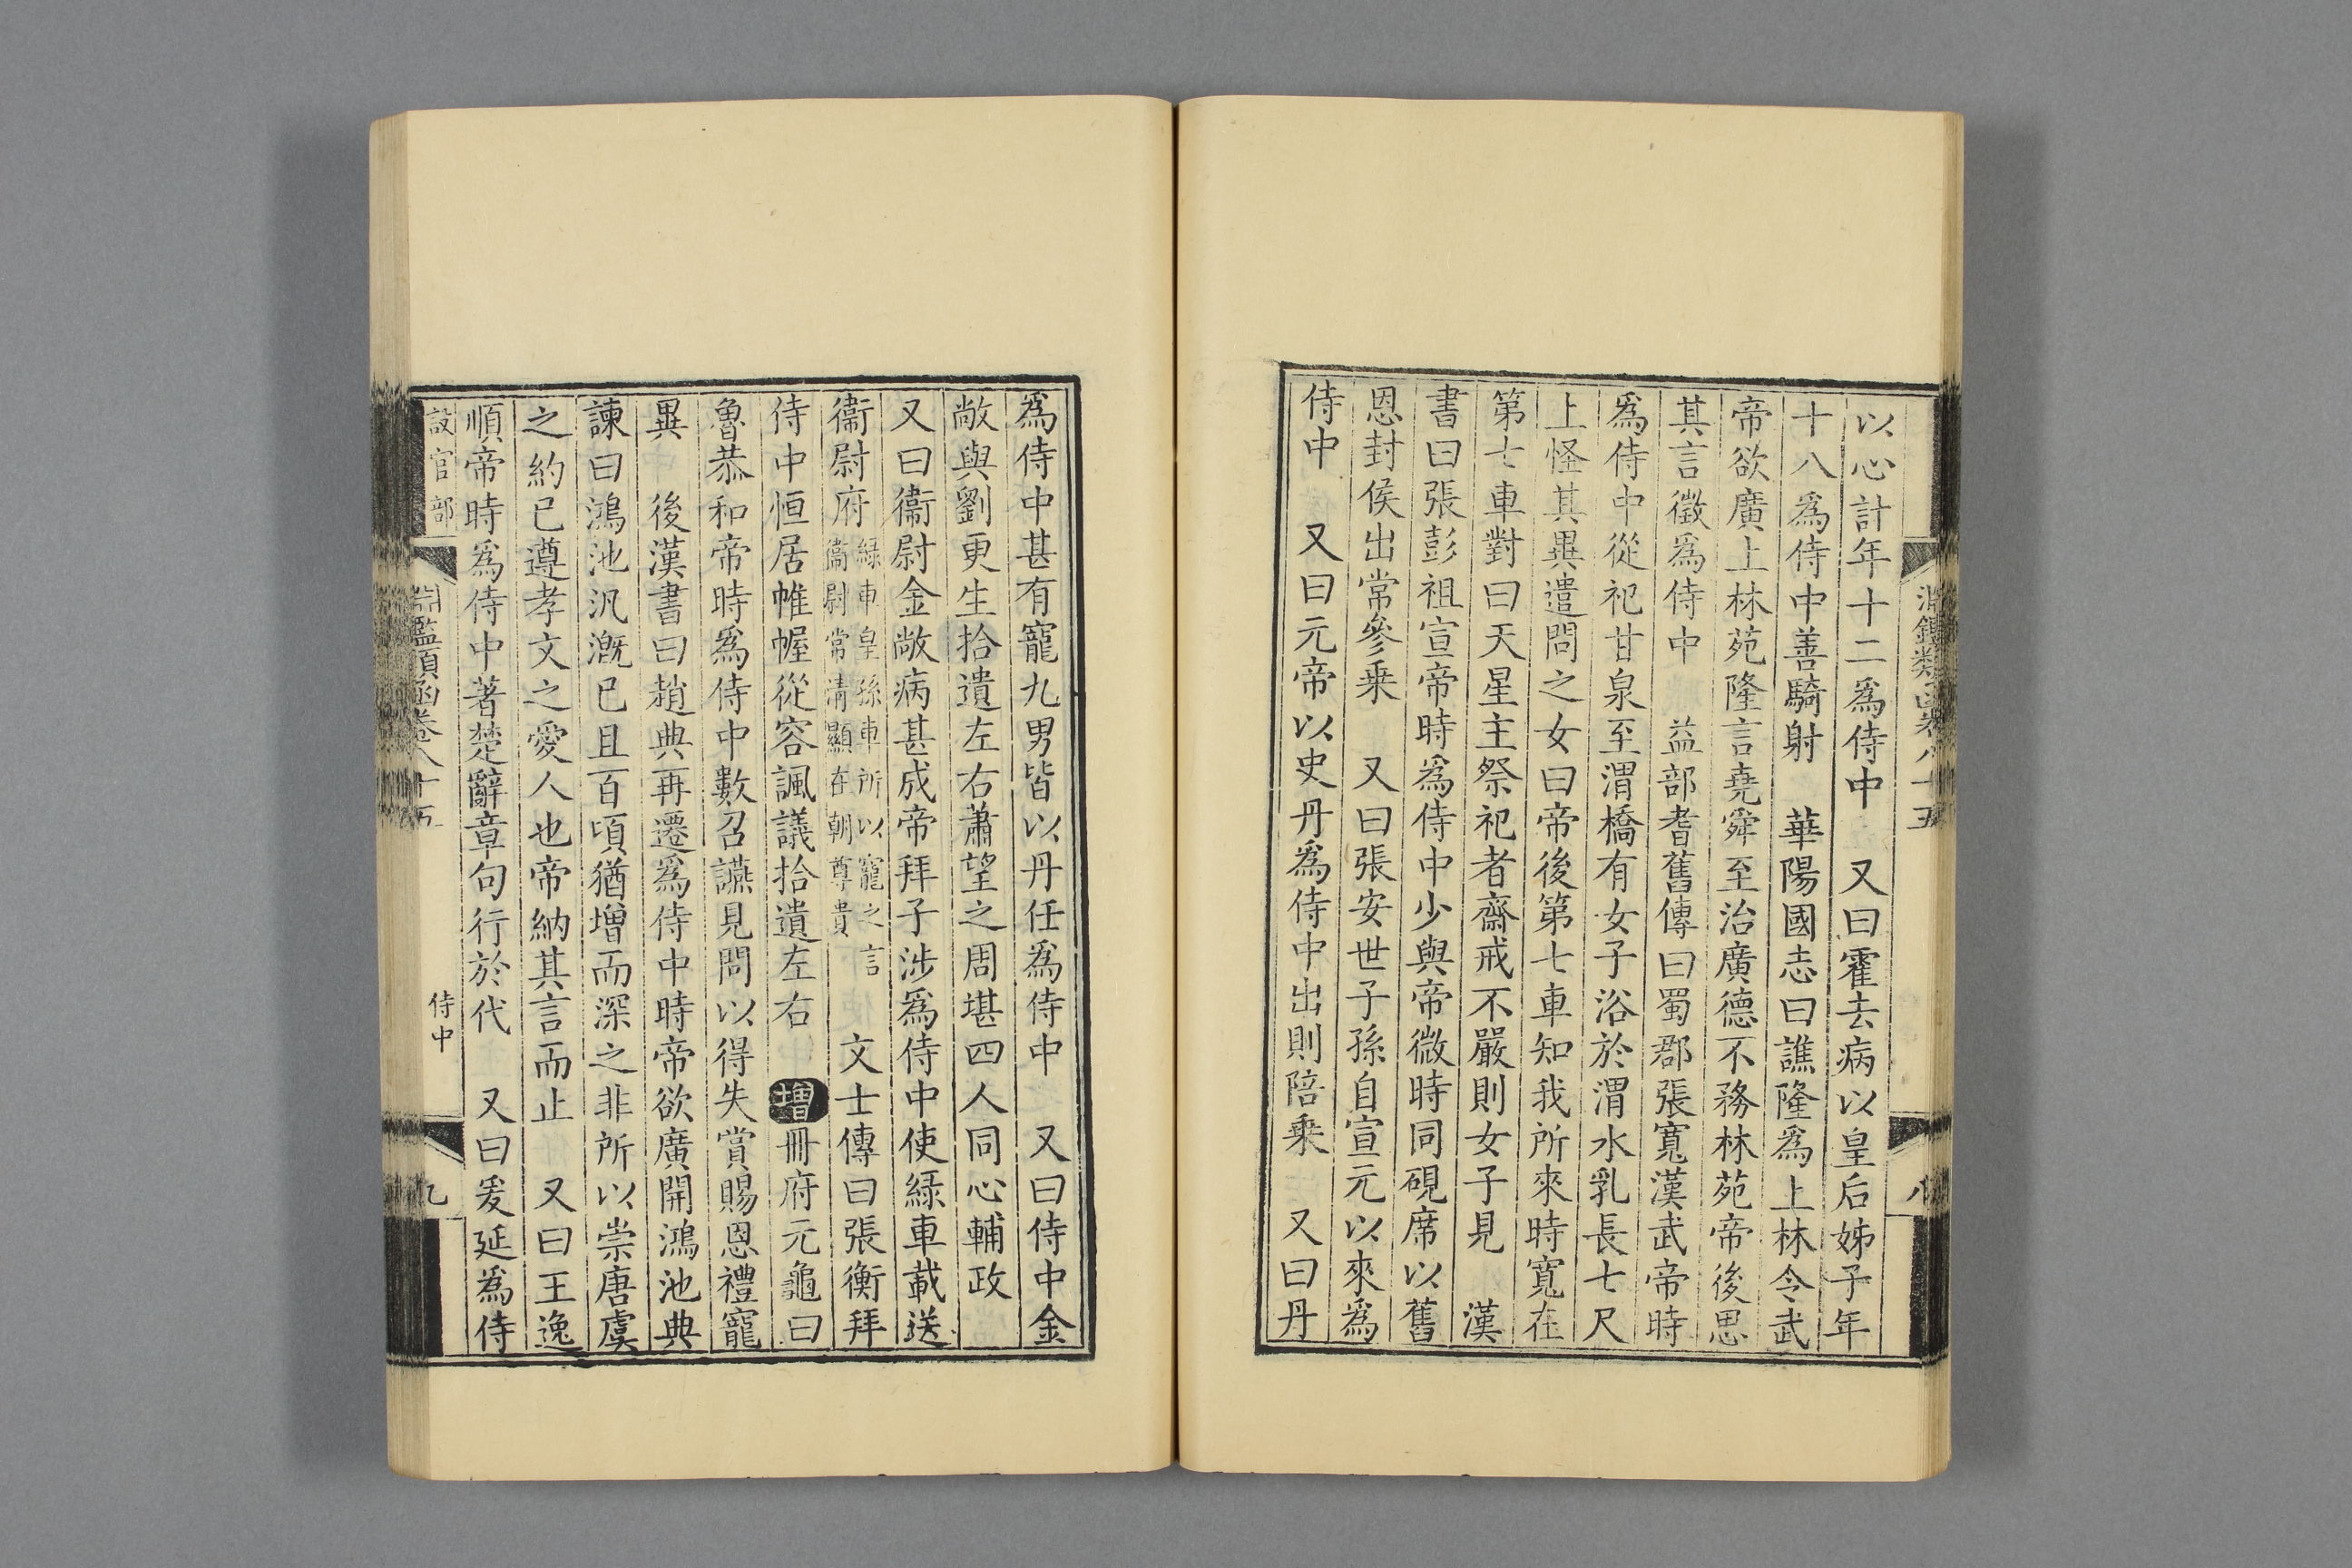 淵鑑類函卷八十五
八
以心計年十二爲侍中 又曰霍去病以皇后姊子年
十八爲侍中善騎射 華陽國志曰譙隆爲上林令武
帝欲廣上林苑隆言堯舜至治廣德不務林苑帝後思
其言徵爲侍中 益部耆舊傳曰蜀郡張寬漢武帝時
爲侍中從祀甘泉至渭橋有女子浴於渭水乳長七尺
上怪其異遣問之女曰帝後第七車知我所來時寬在
第七車對曰天星主祭祀者齋戒不嚴則女子見 漢
書曰張彭祖宣帝時爲侍中少與帝微時同硯席以舊
恩封侯出常參乗 又曰張安世子孫自宣元以來爲
侍中 又曰元帝以史丹爲侍中出則陪乗 又曰丹
爲侍中甚有寵九男皆以丹任爲侍中 又曰侍中金
敞與劉更生拾遺左右蕭望之周堪四人同心輔政
又曰衞尉金敞病甚成帝拜子涉爲侍中使緑車載送
衞尉府緑車皇孫車所以寵之言衞尉常清顯在朝尊貴 文士傳曰張衡拜
侍中恒居帷幄從容諷議拾遺左右 增冊府元龜曰
魯恭和帝時爲侍中數召讌見問以得失賞賜恩禮寵
異 後漢書曰趙典再遷爲侍中時帝欲廣開鴻池典
諫曰鴻池汎漑已且百頃猶增而深之非所以崇唐虞
之約已遵孝文之愛人也帝納其言而止 又曰王逸
順帝時爲侍中著楚辭章句行於代 又曰爰延爲侍
設官部
淵鑑類函卷八十五
侍中
九